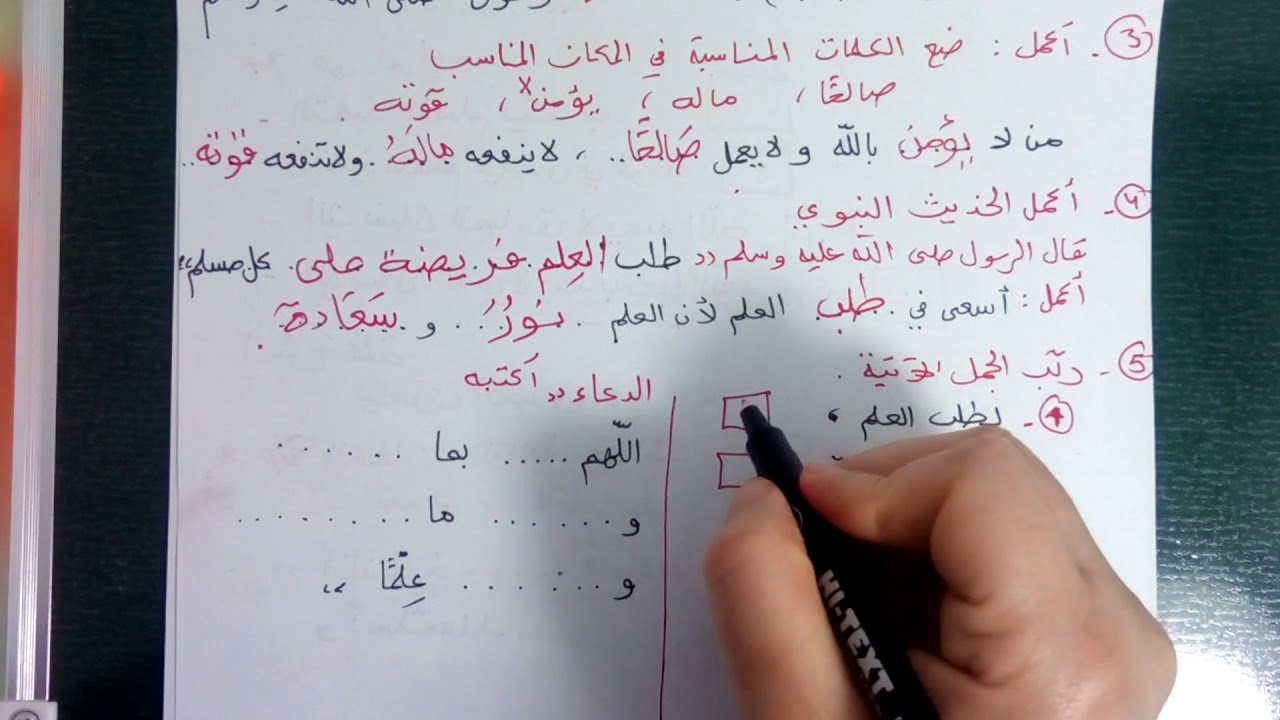 ③ - أكمل : ضع الكلمات المناسبة في المكان المناسب
صالحًا ، ماله ، يؤمن ، قوته
من لا يُؤمِنُ بالله و لا يعمل صَالِحًا.. ، لا ينفعه مالُهُ . ولا تنفعه قوته..
④ - أكمل الحديث النبوي
قال الرسول صلى الله عليه وسلم " طلب العِلم. فريضة على. كل مسلم "
أكمل : أسعى في . طلب العلم لأن العلم . نورٌ . . و . سَعَادة .
⑤ - رتب الجمل الآتية .
① - لطلب العلم ،
الدعاء " أكتبه
اللّهم ..... بما ......
و ...... ما ........
و ...... عِلمًا "
HI-TEXT